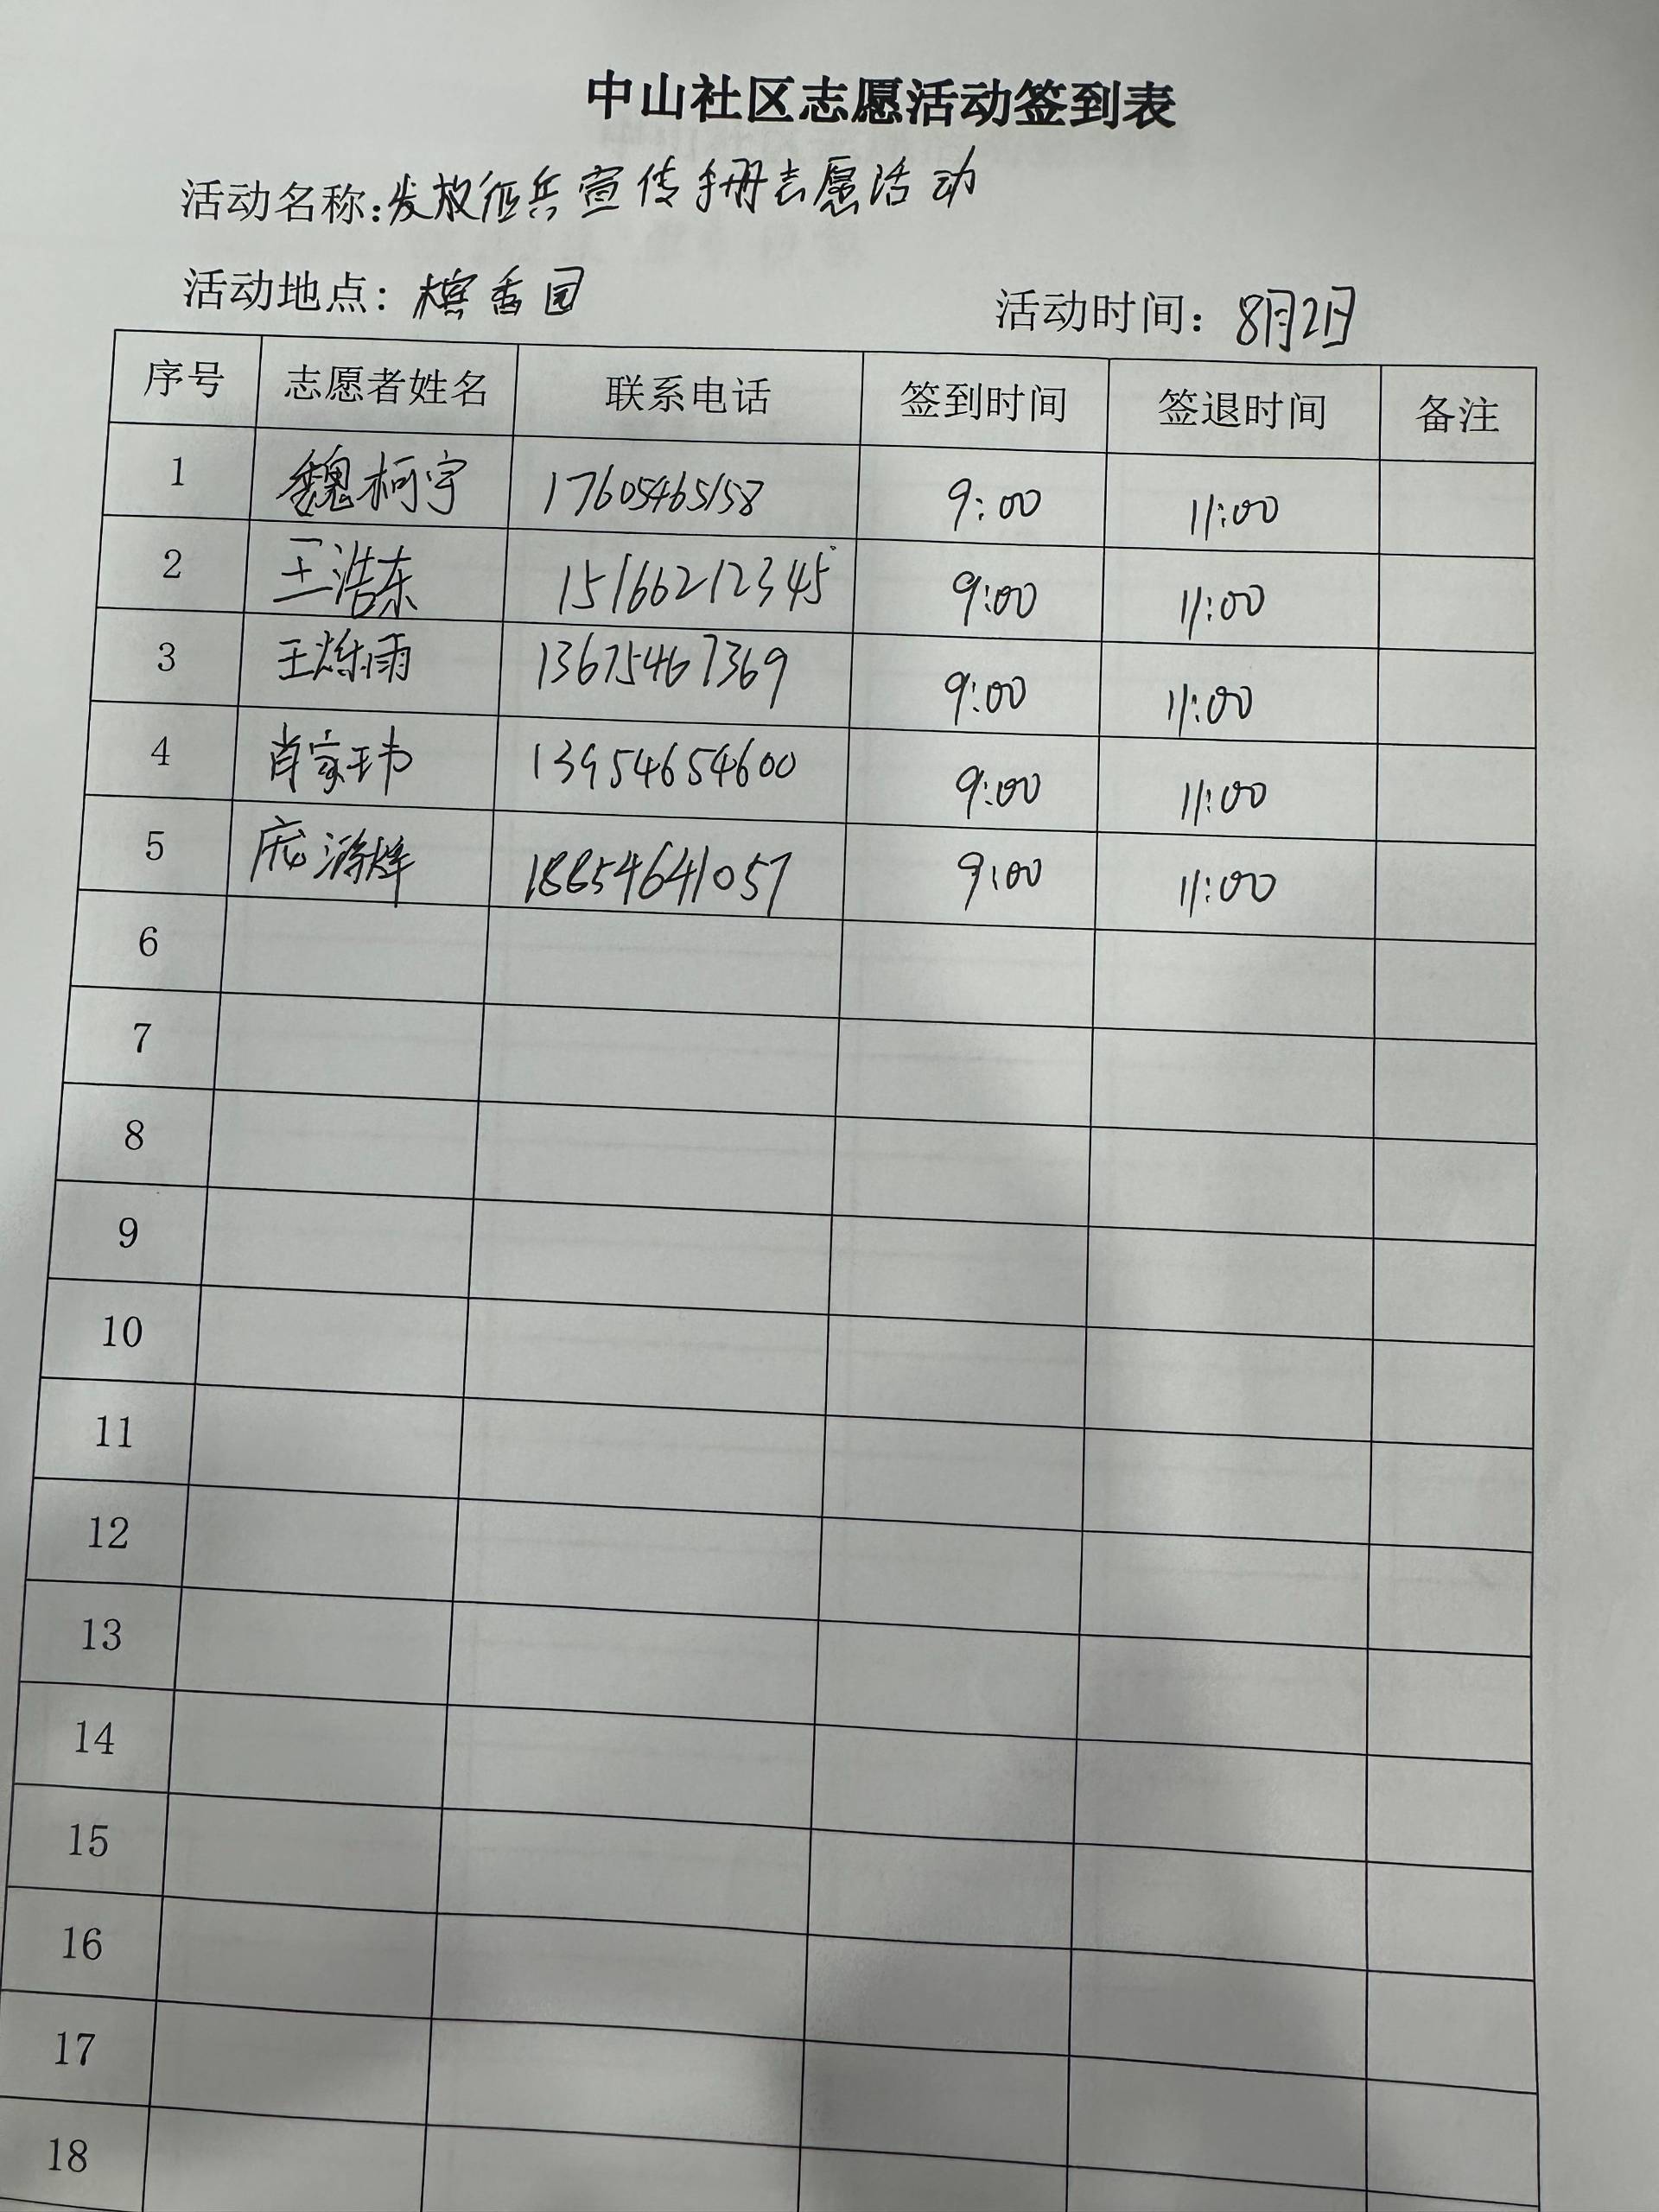 中山社区志愿活动签到表
活动名称:发放征兵宣传手册志愿活动
活动地点: 槟香园 活动时间: 8月2日
序号 志愿者姓名 联系电话 签到时间 签退时间 备注
1 魏柯宇 17605465158 9:00 11:00
2 王浩东 15166212345 9:00 11:00
3 王烁雨 13675467369 9:00 11:00
4 肖家玮 13954654600 9:00 11:00
5 庞 18854641057 9:00 11:00
6
7
8
9
10
11
12
13
14
15
16
17
18